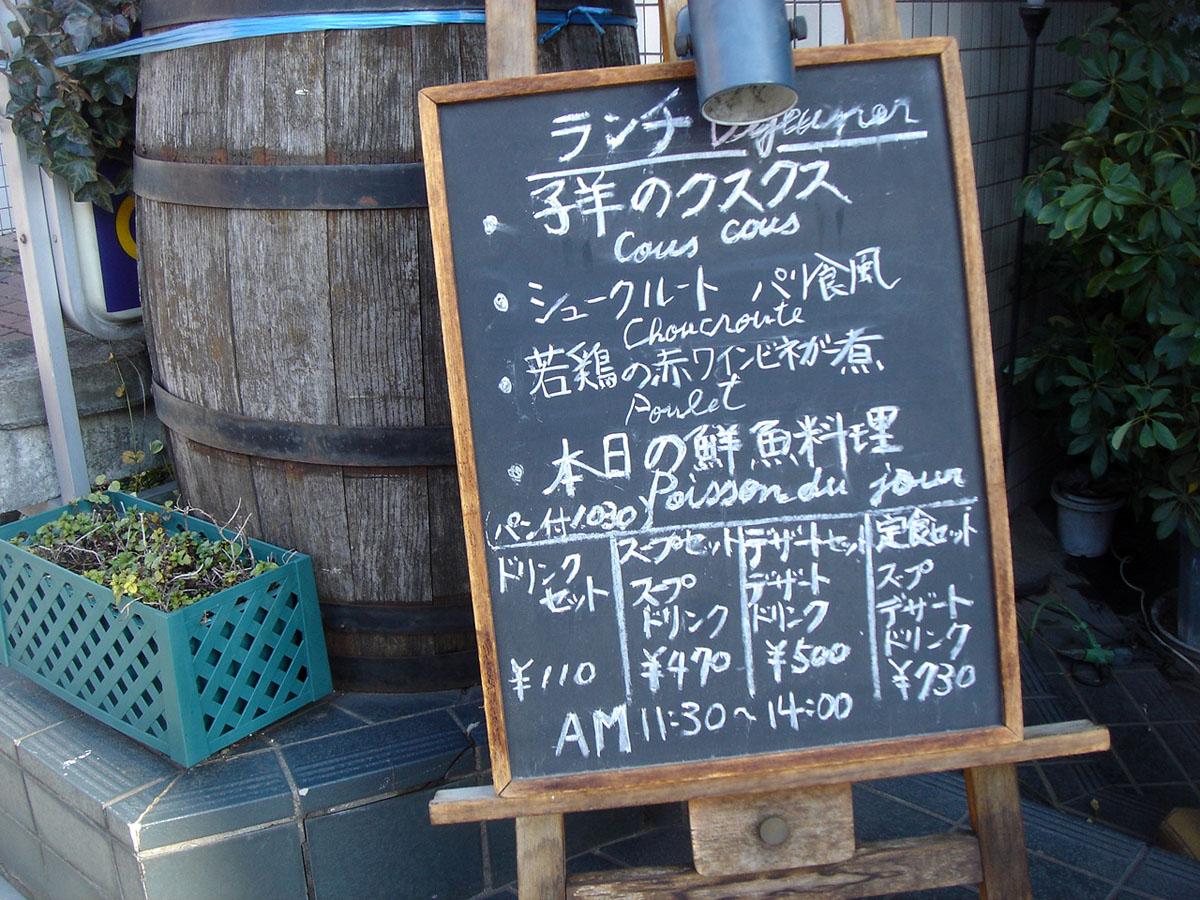 ランチ Dejeuner
・子羊のクスクス
Cous cous
・シュークルート パリ食風
Choucroute
・若鶏の赤ワインビネガー煮
Poulet
・本日の鮮魚料理
Poisson du jour
(パン付1030)
ドリンクセット
¥110
スープセット
スープ
ドリンク
¥470
デザートセット
デザート
ドリンク
¥500
定食セット
スープ
デザート
ドリンク
¥730
AM 11:30~14:00